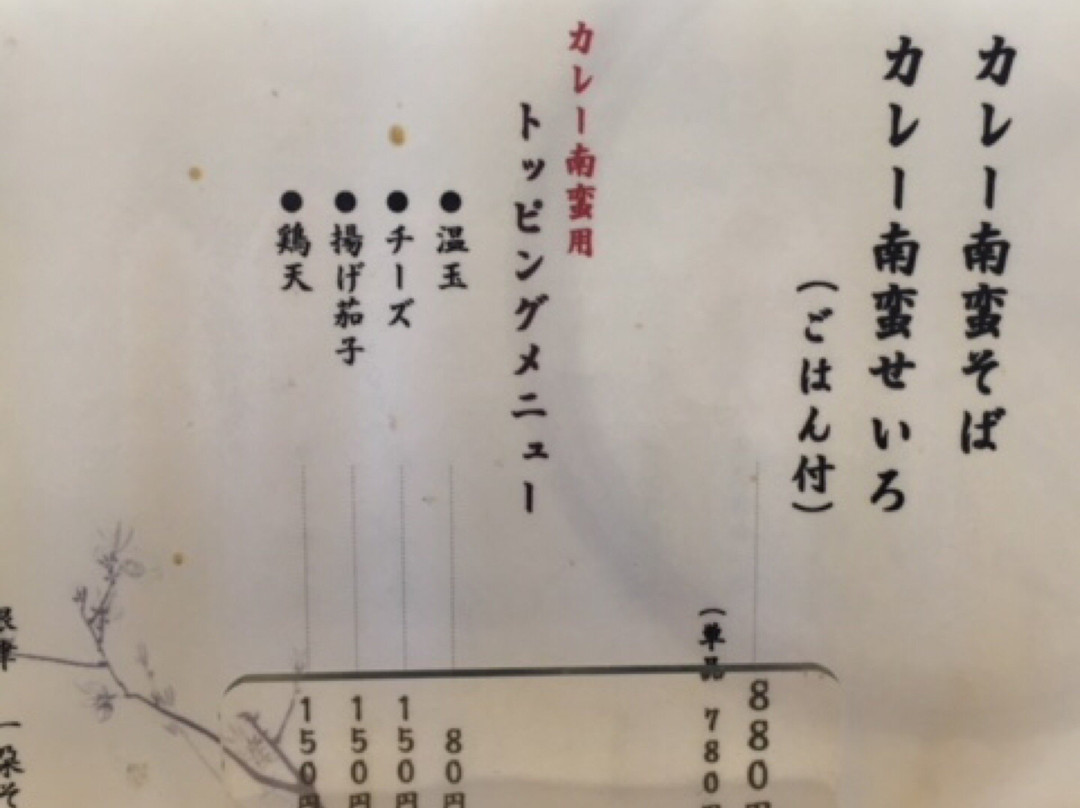 カレー南蛮そば
カレー南蛮せいろ
(ごはん付)
880円
(単品 780円
カレー南蛮用
トッピングメニュー
●温玉 80円
●チーズ 150円
●揚げ茄子 150円
●鶏天 150円